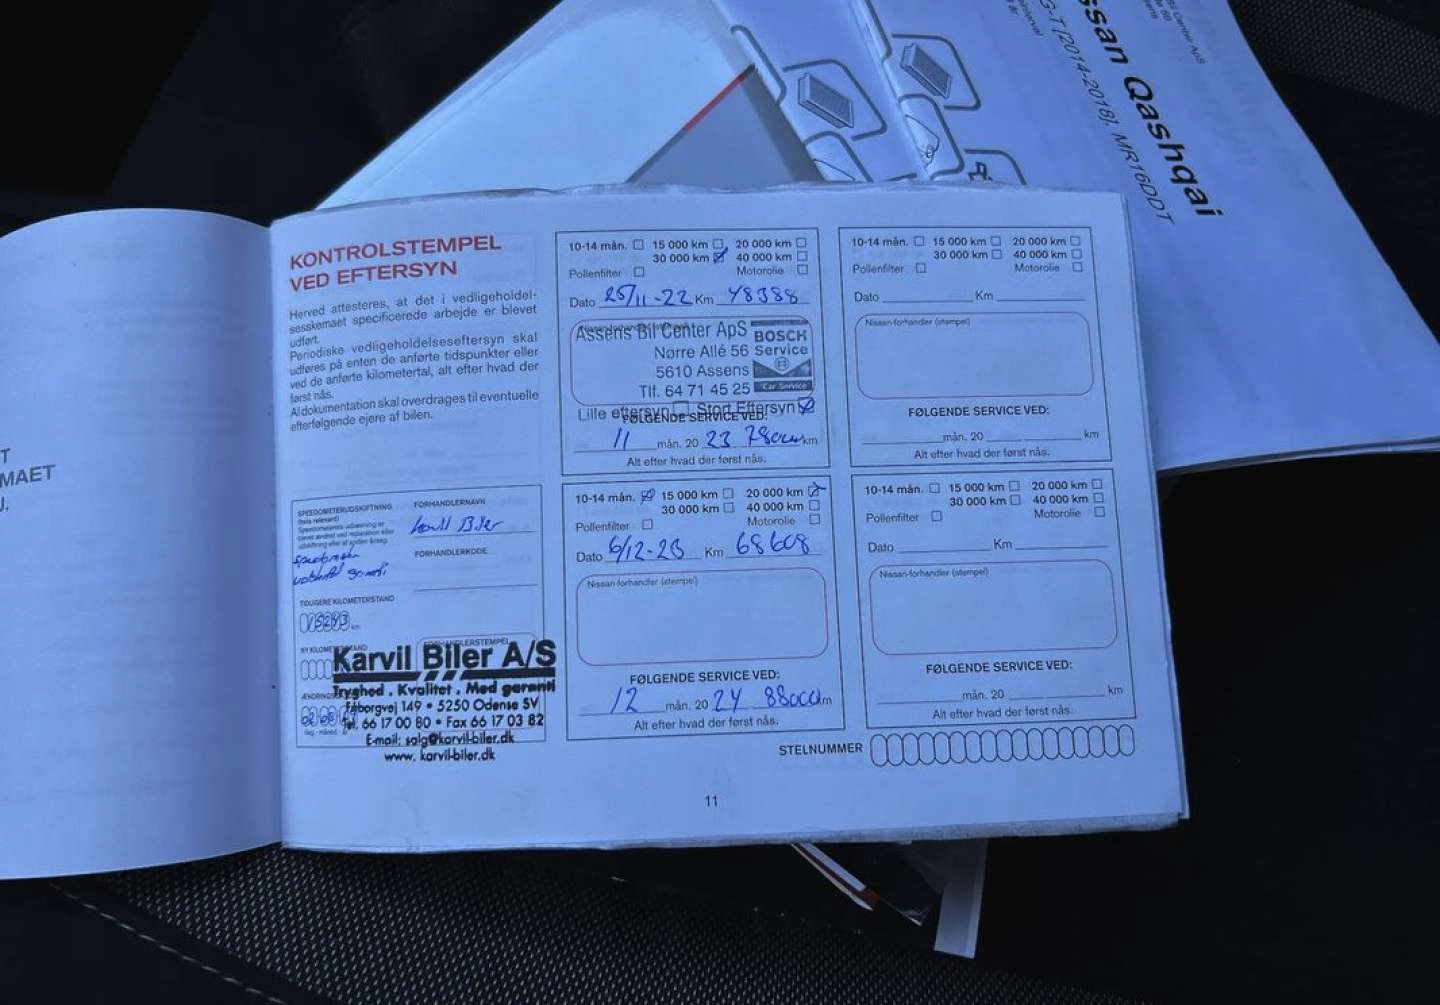 ssan Qashqai
G-T [2014-2018], MR16DDT
T
MAET
J.
KONTROLSTEMPEL
VED EFTERSYN
Herved attesteres, at det i vedligeholdel-
sesskemaet specificerede arbejde er blevet
udført.
Periodiske vedligeholdelseseftersyn skal
udføres på enten de anførte tidspunkter eller
ved de anførte kilometertal, alt efter hvad der
først nås.
Al dokumentation skal overdrages til eventuelle
efterfølgende ejere af bilen.
SPEEDOMETERUDSKIFTNING
(hvis relevant)
FORHANDLERNAVN
Karvil Biler
FORHANDLERKODE
TIDLIGERE KILOMETERSTAND
15243 km
FORHANDLERSTEMPEL
Karvil Biler A/S
Tryghed . Kvalitet . Med garanti
Fåborgvej 149 • 5250 Odense SV
Tel. 66 17 00 80 • Fax 66 17 03 82
E-mail: salg@karvil-biler.dk
www. karvil-biler.dk
10-14 mån. 15 000 km 20 000 km
30 000 km 40 000 km
Pollenfilter Motorolie
Dato 25/11-22 Km 48388
Nissan-forhandler (stempel)
Assens Bil Center ApS
Nørre Allé 56
5610 Assens
Tlf. 64 71 45 25
BOSCH
Service
Car Service
Lille eftersyn Stort Eftersyn
FØLGENDE SERVICE VED:
11 mån. 20 23 78000 km
Alt efter hvad der først nås.
10-14 mån. 15 000 km 20 000 km
30 000 km 40 000 km
Pollenfilter Motorolie
Dato 6/12-23 Km 68608
Nissan-forhandler (stempel)
FØLGENDE SERVICE VED:
12 mån. 20 24 88000 km
Alt efter hvad der først nås.
10-14 mån. 15 000 km 20 000 km
30 000 km 40 000 km
Pollenfilter Motorolie
Dato Km
Nissan-forhandler (stempel)
FØLGENDE SERVICE VED:
mån. 20 km
Alt efter hvad der først nås.
10-14 mån. 15 000 km 20 000 km
30 000 km 40 000 km
Pollenfilter Motorolie
Dato Km
Nissan-forhandler (stempel)
FØLGENDE SERVICE VED:
mån. 20 km
Alt efter hvad der først nås.
STELNUMMER
11